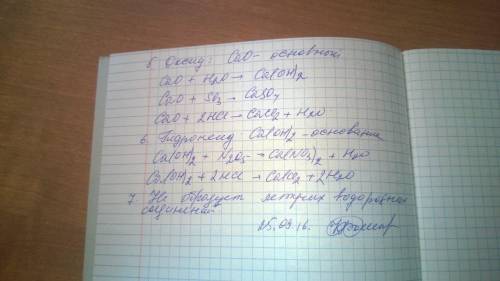 5. Оксид: CaO - основный
CaO + H2O → Ca(OH)2
CaO + SO3 → CaSO4
CaO + 2HCl → CaCl2 + H2O
6. Гидроксид Ca(OH)2 - основание
Ca(OH)2 + N2O5 → Ca(NO3)2 + H2O
Ca(OH)2 + 2HCl → CaCl2 + 2H2O
7. Не образует летучих водородных
соединений.
25.09.16.